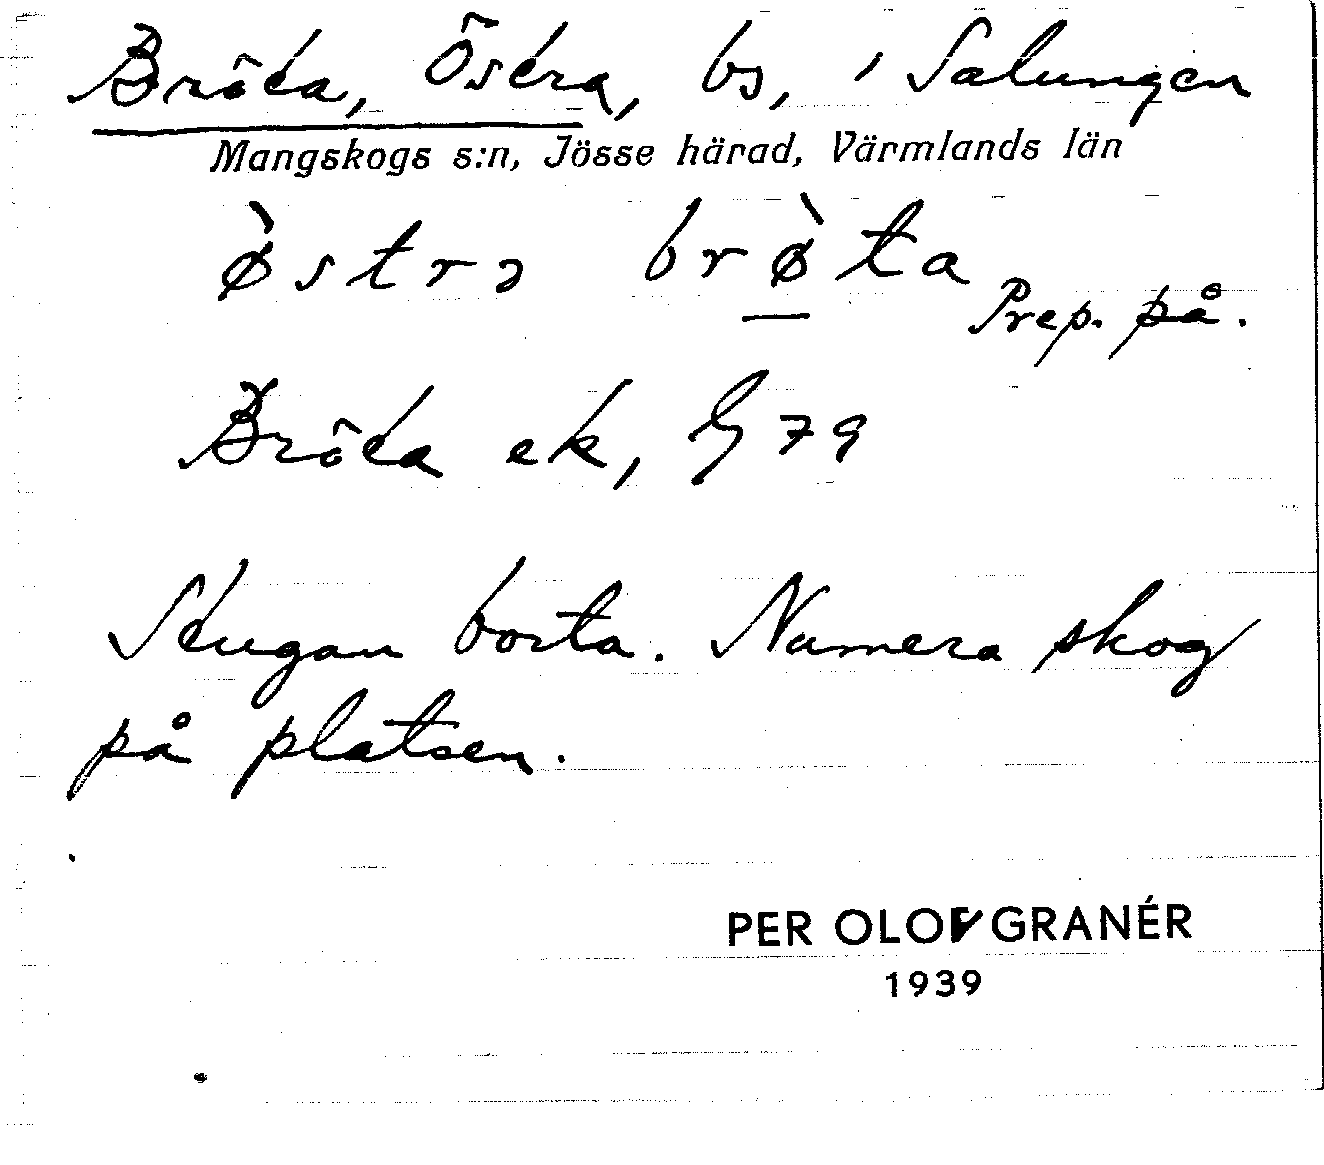 Bröta, Östra, bs, i Salungen
Mangskogs s:n, Jösse härad, Värmlands län
ø̀strə brø̠̀ta
Prep. på.
Bröta ek, G 79
Stugan borta. Numera skog
på platsen.
PER OLOF GRANÉR
1939